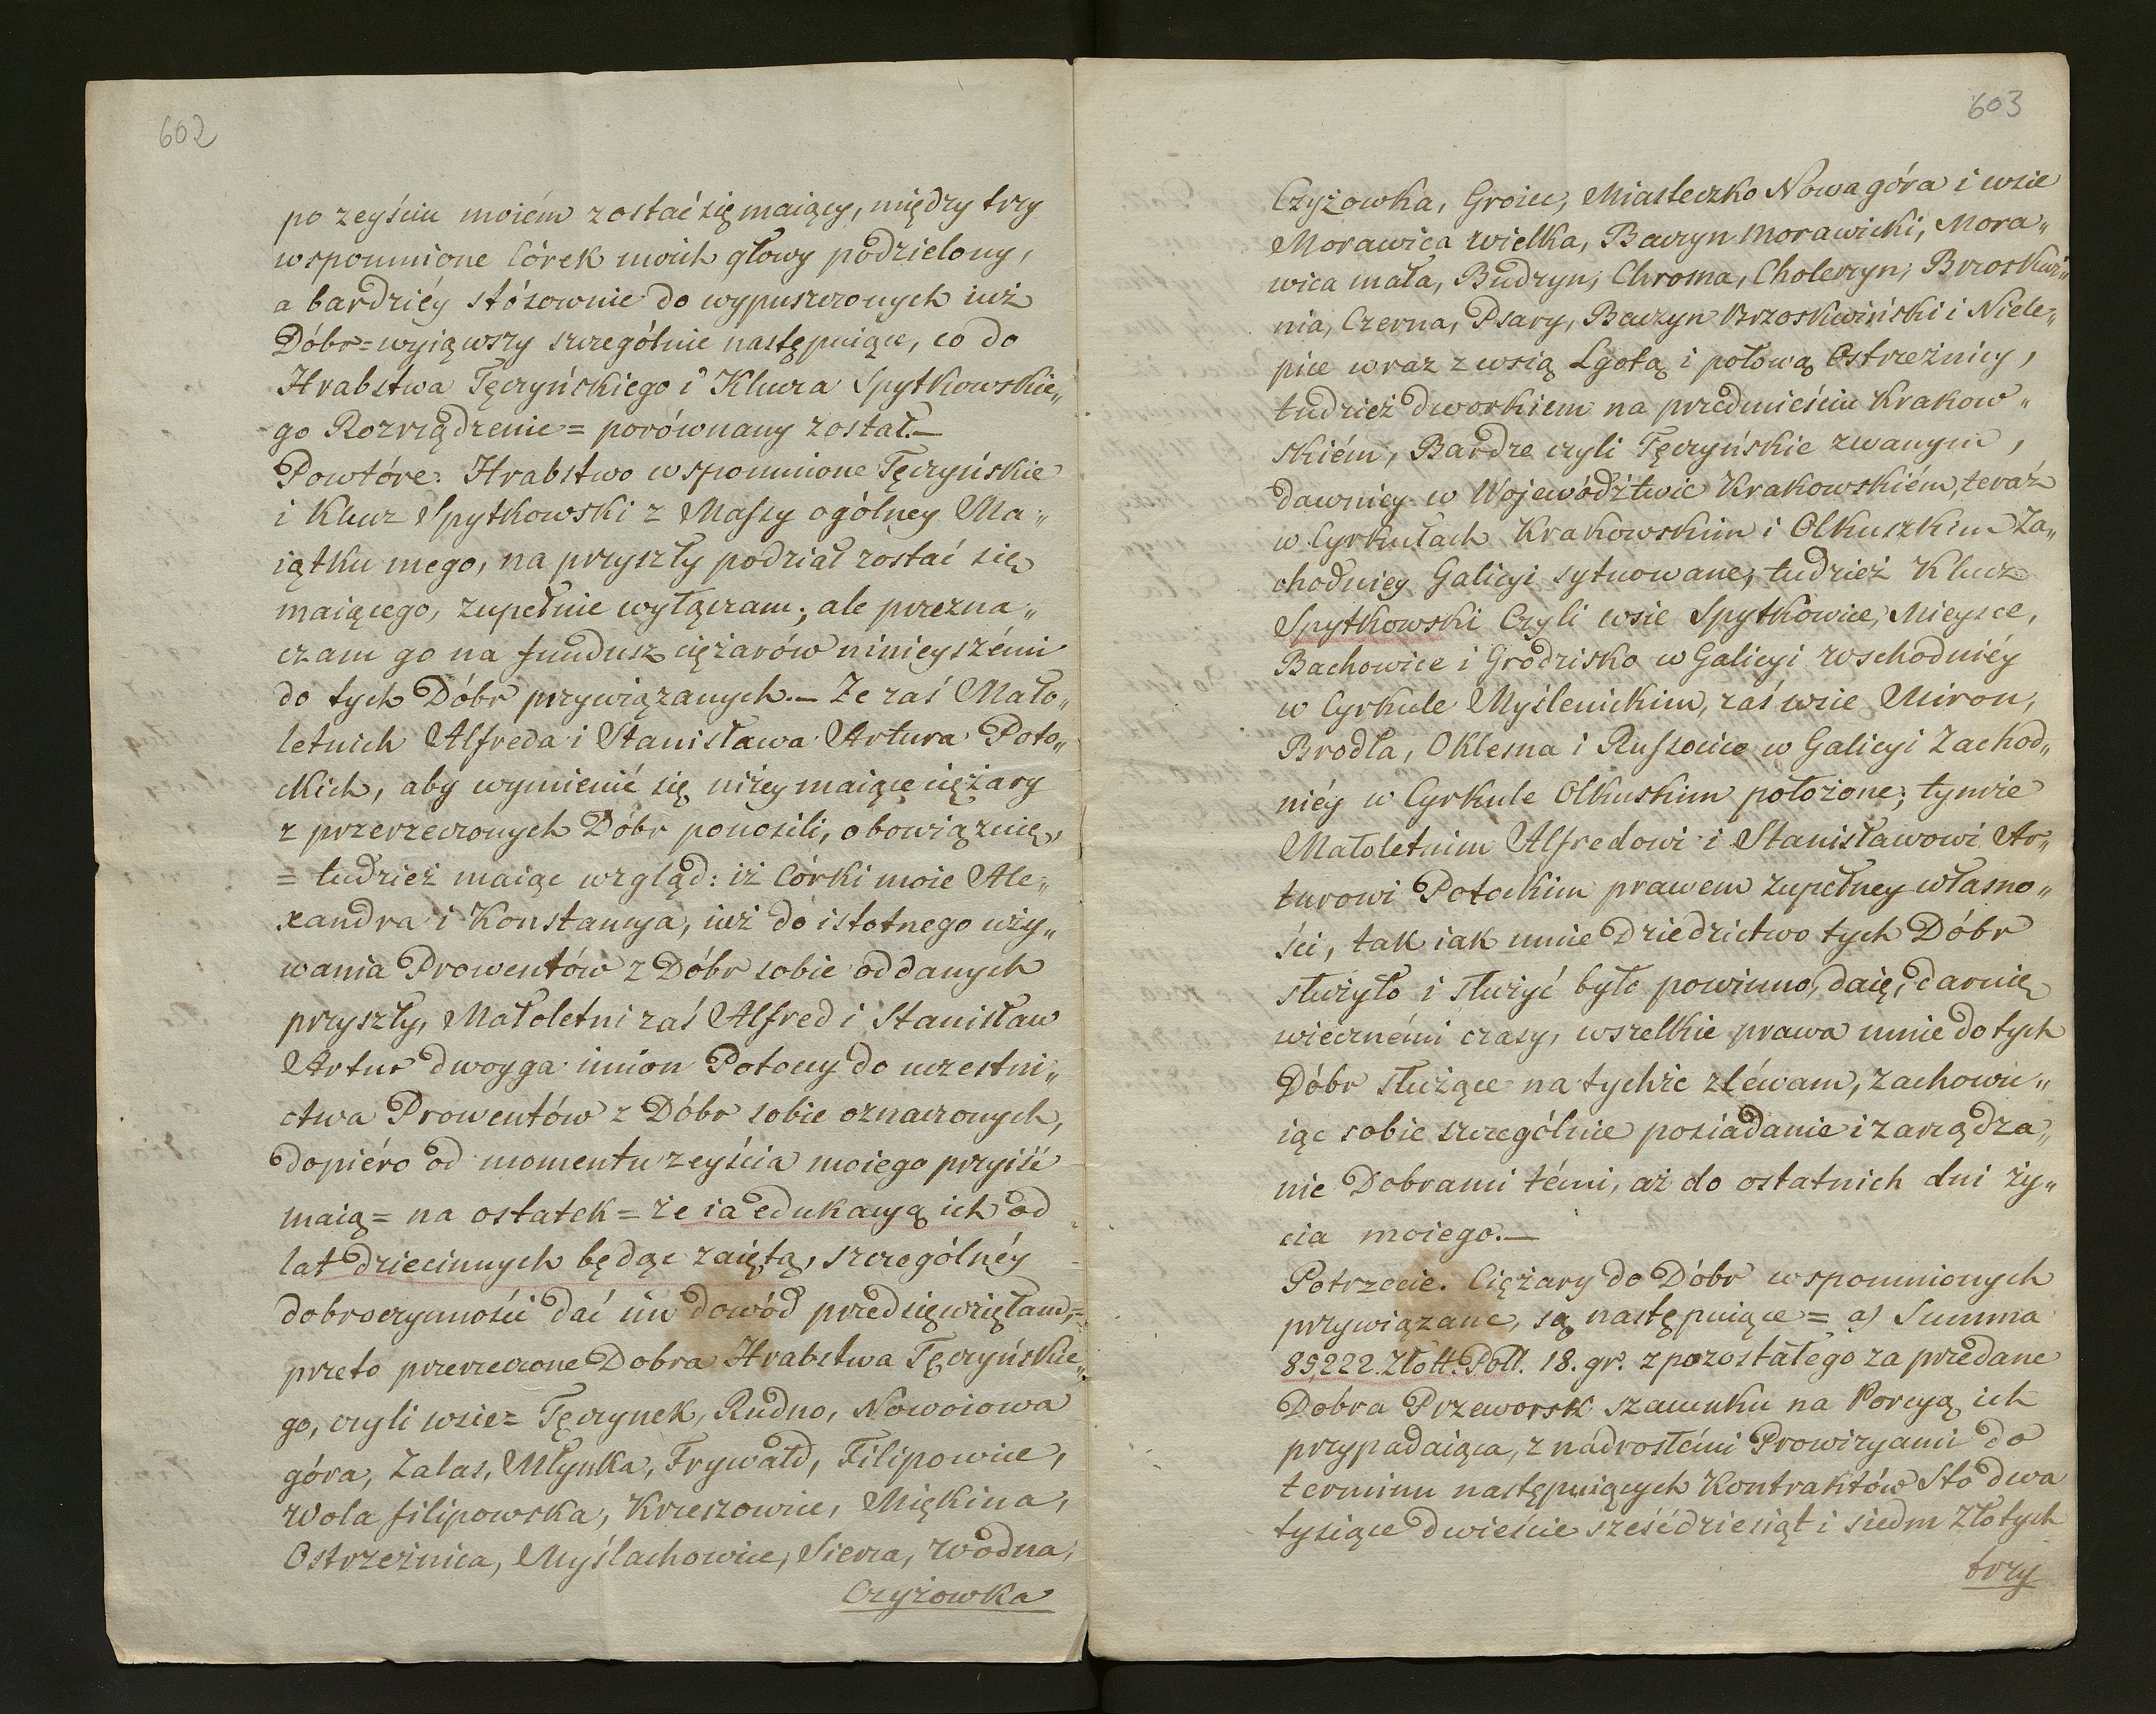 602
po zeyściu moiém zostać się maiący, między trzy
wspomnione Córek moich głowy podzielony,
a bardziéy stósownie do wypuszczonych iuż
Dóbr = wyiąwszy szczególnie następuiące, co do
Hrabstwa Tęczyńskiego i Klucza Spytkowskie„
go Rozrządzenie = porównany został. —
Powtóre: Hrabstwo wspomnione Tęczyńskie
i Klucz Spytkowski z Massy ogólney Ma„
iątku mego, na przyszły podział zostać się
maiącego, zupełnie wyłączam; ale przezna„
czam go na fundusz ciężarów ninieyszémi
do tych Dóbr przywiązanych. — Że zaś Mało„
letnich Alfreda i Stanisława Artura Poto„
ckich, aby wymienić się niżey maiące ciężary
z przerzeczonych Dóbr ponosili, obowiązuię,
= tudzież maiąc wzgląd: iż Córki moie Ale„
xandra i Konstancya, iuż do istotnego uży„
wania Prowentów z Dóbr sobie oddanych
przyszły, Małoletni zaś Alfred i Stanisław
Artur dwoyga imion Potoccy do uczestni„
ctwa Prowentów z Dóbr sobie oznaczonych,
dopiéro od momentu zeyścia moiego przyiść
maią = na ostatek = że ia edukacyą ich od
lat dziecinnych będąc zaiętą, szczególnéy
dobroczynności dać im dowód przedsięwzięłam, =
przeto przerzeczone Dobra Hrabstwa Tęczyńskie„
go, czyli wsie = Tęczynek, Rudno, Nowoiowa
góra, Zalas, Młynka, Frywałd, Filipowice,
Wola filipowska, Krzeszowice, Miękina,
Ostrzeżnica, Myślachowice, Siersza, Wodna,
Czyżowka
603
Czyżowka, Groiec, Miasteczko Nowagóra i wsie
Morawica wielka, Baczyn Morawicki, Mora„
wica mała, Budzyn, Chroma, Cholerzyn, Brzoskwi„
nia, Czerna, Psary, Baczyn Brzoskwiński i Niele„
pice wraz z wsią Lgotą i połową Ostrzeżnicy,
tudzież dworkiem na przedmieściu Krakow„
skiém, Bardze czyli Tęczyńskie zwanym,
dawniey w Wojewódźtwie Krakowskiém, teraz
w Cyrkułach Krakowskim i Olkuszkim Za„
chodniey Galicyi sytuowane, tudzież Klucz
Spytkowski Czyli wsie Spytkowice, Mieysce,
Bachowice i Grodzisko w Galicyi wschodniéy
w Cyrkule Myślenickim, zaś wsie Miron,
Brodła, Oklesna i Russocice w Galicyi Zachod„
niéy w Cyrkule Olkuskim położone; tymże
Małoletnim Alfredowi i Stanisławowi Ar„
turowi Potockim prawem zupełney własno„
ści, tak iak mnie Dziedzictwo tych Dóbr
służyło i służyć było powinno, daię, daruię
wiecznémi czasy, wszelkie prawa mnie do tych
Dóbr służące na tychże zléwam, zachowu„
iąc sobie szczególnie posiadanie i zarządza„
nie Dobrami témi, aż do ostatnich dni ży„
cia moiego. —
Potrzecie. Ciężary do Dóbr wspomnionych
przywiązane, są następuiące = a) Summa
89,222. Złott. Poll. 18. gr. z pozostałego za przedane
Dobra Przeworsk szacunku na Porcyą ich
przypadaiąca, z nádrosłémi Prowizyami do
terminu następuiących Kontraktów Sto dwa
tysiące dwieście sześćdziesiąt i siedm Złotych
trzy